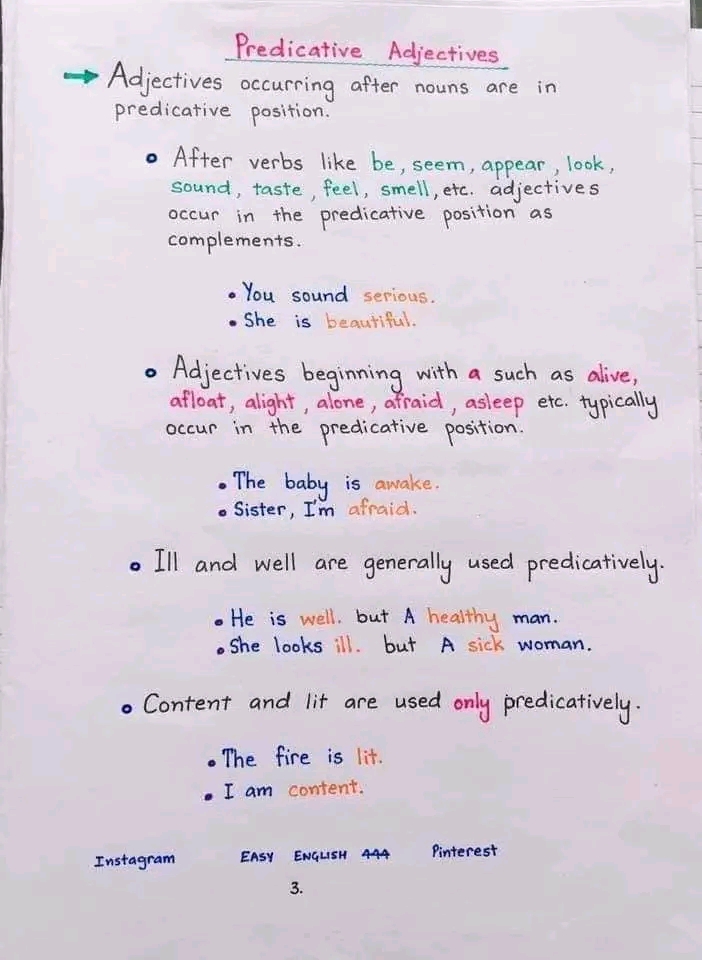 Predicative Adjectives
→ Adjectives occurring after nouns are in
predicative position.
• After verbs like be, seem, appear, look,
sound, taste, feel, smell, etc. adjectives
occur in the predicative position as
complements.
• You sound serious.
• She is beautiful.
• Adjectives beginning with a such as alive,
afloat, alight, alone, afraid, asleep etc. typically
occur in the predicative position.
• The baby is awake.
• Sister, I'm afraid.
• Ill and well are generally used predicatively.
• He is well. but A healthy man.
• She looks ill. but A sick woman.
• Content and lit are used only predicatively.
• The fire is lit.
• I am content.
Instagram EASY ENGLISH 444 Pinterest
3.